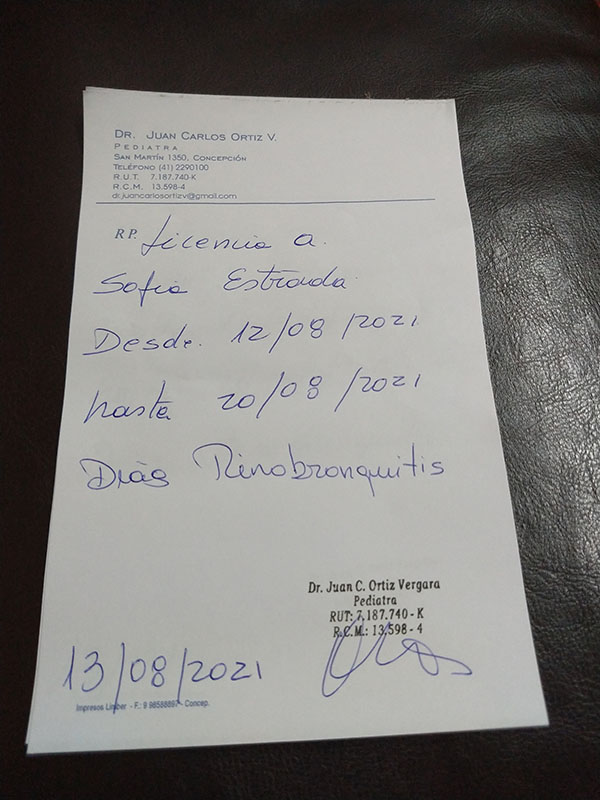 DR. JUAN CARLOS ORTIZ V.
PEDIATRA
SAN MARTÍN 1350, CONCEPCIÓN
TELÉFONO (41) 2290100
R.U.T. 7.187.740-K
R.C.M. 13.598-4
dr.juancarlosortizv@gmail.com
RP. Licencia a.
Sofia Estrada
Desde. 12/08/2021
hasta 20/08/2021
Diag Rinobronquitis
Dr. Juan C. Ortiz Vergara
Pediatra
RUT: 7.187.740-K
R.C.M.: 13.598-4
13/08/2021
Impresos - F.: 9 98588897 - Concep.